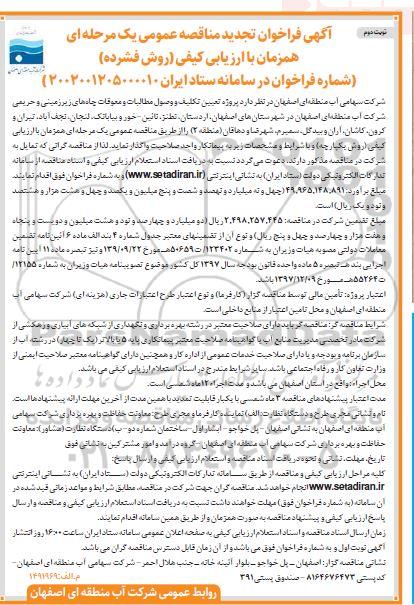 نوبت دوم
آگهی فراخوان تجدید مناقصه عمومی یک مرحله ای
همزمان با ارزیابی کیفی (روش فشرده)
(شماره فراخوان در سامانه ستاد ایران ۲۰۰۲۰۰۱۲۰۵۰۰۰۰۱۰)
شرکت سهامی آب منطقه‌ای اصفهان در نظر دارد پروژه تعیین تکلیف و وصول مطالبات و معوقات چاه‌های زیرزمینی و حریمی
شرکت آب منطقه‌ای اصفهان در شهرستان های اصفهان، اردستان، نطنز، نائین- خور و بیابانک، لنجان، نجف آباد، تیران و
کرون، کاشان، آران و بیدگل، سمیرم، شهرضا و دهاقان (منطقه ۲) را از طریق مناقصه عمومی یک مرحله ای همزمان با ارزیابی
کیفی (روش یکپارچه) و با شرایط و مشخصات زیر به پیمانکار واجد صلاحیت واگذار نماید. لذا از مناقصه گرانی که تمایل به
شرکت در مناقصه مذکور دارند، دعوت می گردد نسبت به دریافت اسناد استعلام ارزیابی کیفی و اسناد مناقصه از سامانه
تدارکات الکترونیکی دولت (ستاد ایران) به نشانی اینترنتی (www.setadiran.ir) و به شماره فراخوان فوق اقدام نمایند.
مبلغ برآورد: ۴۹,۹۶۵,۱۴۸,۸۹۱ (چهل و نه میلیارد و نهصد و شصت و پنج میلیون و یکصد و چهل و هشت هزار و هشتصد
و نود و یک ریال) است.
مبلغ تضمین شرکت در مناقصه: ۲,۴۹۸,۲۵۷,۴۴۵ ریال (دو میلیارد و چهارصد و نود و هشت میلیون و دویست و پنجاه
و هفت هزار و چهارصد و چهل و پنج ریال) و نوع آن از تضمینهای معتبر جدول شماره ۴ بند الف ماده ۶ آئین نامه تضمین
معاملات دولتی مصوبه هیات وزیران به شماره ۱۲۳۴۰۲/ت۵۰۶۵۹هـ مورخ ۱۳۹۴/۰۹/۲۲ و نیز تبصره ماده ۱۱ آیین نامه
اجرایی بند هـ تبصره ۵ ماده واحده قانون بودجه سال ۱۳۹۷ کل کشور موضوع تصویبنامه هیات وزیران به شماره ۱۲۱۵۵/
ت۵۵۲۶۴هـ مورخ ۱۳۹۷/۱۲/۰۹ باشد.
اعتبار پروژه: تأمین مالی توسط مناقصه گزار (کارفرما) و نوع اعتبار طرح اعتبارات جاری (هزینه ای) شرکت سهامی آب
منطقه ای اصفهان و محل تامین اعتبار از منابع داخلی است.
شرایط مناقصه گر: مناقصه گر باید دارای صلاحیت معتبر در رشته بهره برداری و نگهداری از شبکه های آبیاری و زهکشی از
شرکت مادر تخصصی مدیریت منابع آب یا گواهینامه صلاحیت معتبر پیمانکاری پایه ۵ یا بالاتر (یک تا چهار) در رشته آب از
سازمان برنامه و بودجه و یا دارای صلاحیت خدمات عمومی از اداره کار و همچنین دارای گواهینامه معتبر صلاحیت ایمنی از
وزارت تعاون کار و رفاه اجتماعی باشد. سایر شرایط مندرج در اسناد استعلام ارزیابی کیفی می باشد.
محل اجراء: واقع در استان اصفهان می باشد و مدت اجراء ۱۲ ماه شمسی است.
مدت اعتبار پیشنهادهای مناقصه ۳ ماه شمسی با یکبار قابلیت تمدید با همین مدت از آخرین مهلت ارائه پیشنهادها است.
نام و نشانی مجری طرح و دستگاه نظارت: الف) نماینده کارفرما و مجری طرح: معاونت حفاظت و بهره برداری شرکت سهامی
آب منطقه ای اصفهان به نشانی اصفهان - پل خواجو - آبشار اول - ساختمان شماره دو - ب) دستگاه نظارت (مشاور): معاونت
حفاظت و بهره برداری شرکت سهامی آب منطقه ای اصفهان - گروه درآمد و امور مشترکین به نشانی فوق
تاریخ، مهلت، نشانی و نحوه دریافت اسناد مناقصه و استعلام ارزیابی کیفی و ارسال پاسخ:
کلیه مراحل ارزیابی کیفی و مناقصه از طریق سامانه تدارکات الکترونیکی دولت (ستاد ایران) به نشانی اینترنتی
www.setadiran.ir انجام خواهد شد. مناقصه گران جهت شرکت در مناقصه، مطابق شرایط و مواعد زمانی قید شده در
آن سامانه (به شماره فراخوان فوق) مهلت خواهند داشت نسبت به دریافت اسناد استعلام ارزیابی کیفی و مناقصه و ارسال
پاسخ ارزیابی کیفی و پیشنهاد مناقصه به صورت همزمان و از طریق همین سامانه اقدام نمایند.
زمان ارسال اسناد مناقصه و اسناد استعلام ارزیابی کیفی به صفحه اعلان عمومی سامانه ستاد ایران ساعت ۱۶:۰۰ روز انتشار
آگهی نوبت اول و به شماره فراخوان فوق می باشد و از آن زمان قابل دسترس مناقصه گران می باشد.
نشانی مناقصه گزار: اصفهان - پل خواجو - بلوار آئینه خانه - جنب هلال احمر - شرکت سهامی آب منطقه ای اصفهان -
کد پستی ۸۱۶۴۶۷۶۴۷۳ - صندوق پستی ۳۹۱
م.الف: ۱۴۹۱۹۶۹
روابط عمومی شرکت آب منطقه ای اصفهان